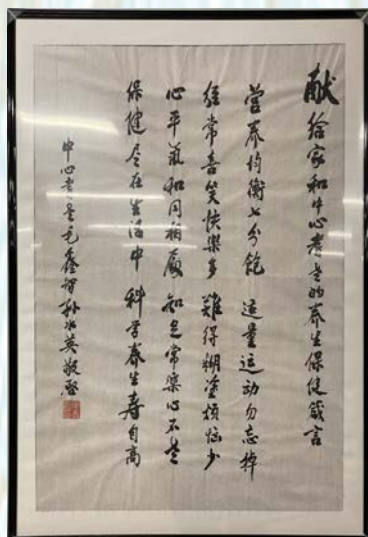 献给家和中心耆老的养生保健箴言
营养均衡七分饱 适量运动勿忘掉
经常喜笑快乐多 难得糊塗烦恼少
心平氣和同相處 知足常樂心不老
保健尽在生活中 科学养生寿自高
中心耆老毛鑫智孙水英敬啓